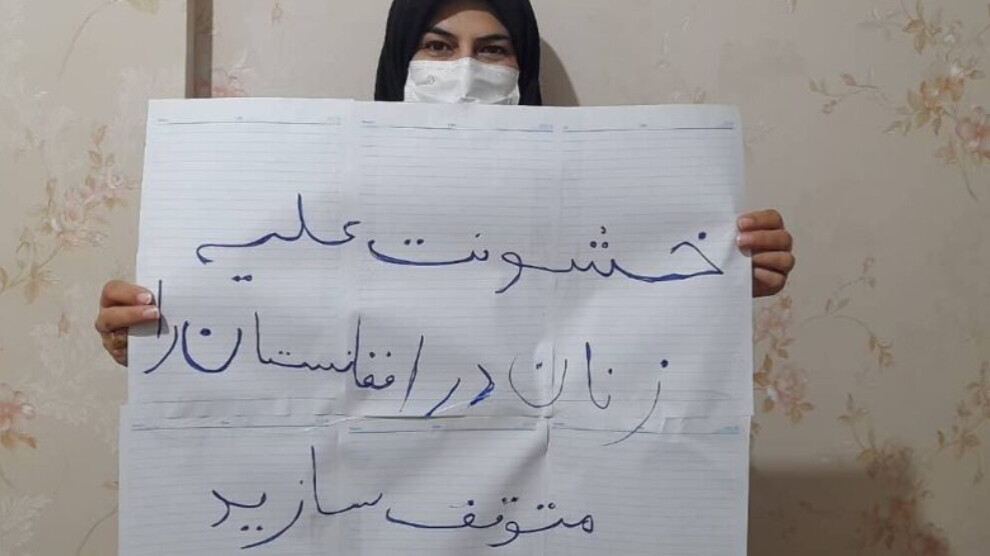 خشونت علیه
زنان در افغانستان را
متوقف سازید